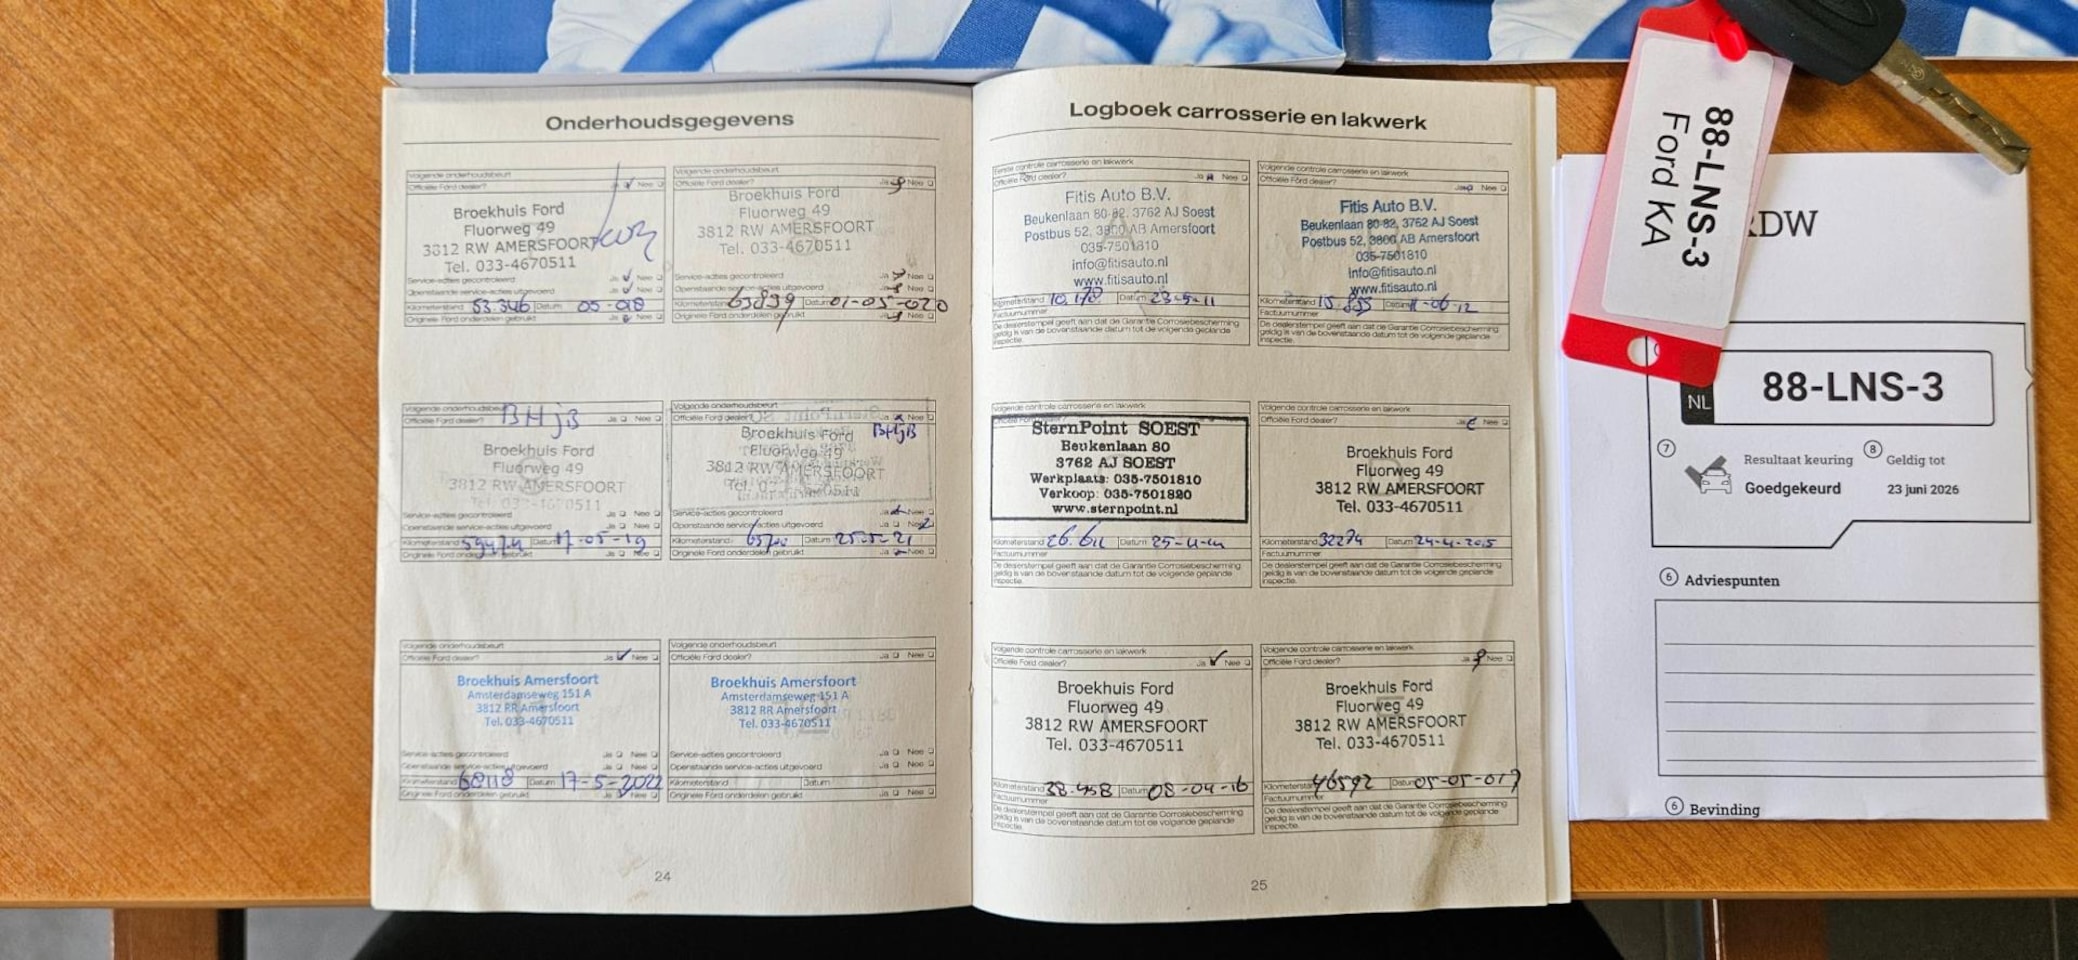 Onderhoudsgegevens
Volgende onderhoudsbeurt
Officiële Ford dealer? Ja Nee
Broekhuis Ford
Fluorweg 49
3812 RW AMERSFOORT
Tel. 033-4670511
Service-acties gecontroleerd Ja Nee
Openstaande service-acties uitgevoerd Ja Nee
Kilometerstand 53.346 Datum 05-018
Originele Ford onderdelen gebruikt Ja Nee
Volgende onderhoudsbeurt
Officiële Ford dealer? Ja Nee
Broekhuis Ford
Fluorweg 49
3812 RW AMERSFOORT
Tel. 033-4670511
Service-acties gecontroleerd Ja Nee
Openstaande service-acties uitgevoerd Ja Nee
Kilometerstand 63839 Datum 01-05-020
Originele Ford onderdelen gebruikt Ja Nee
Volgende onderhoudsbeurt BHjB
Officiële Ford dealer? Ja Nee
Broekhuis Ford
Fluorweg 49
3812 RW AMERSFOORT
033-4670511
Service-acties gecontroleerd Ja Nee
Openstaande service-acties uitgevoerd Ja Nee
Kilometerstand Datum 17-05-19
Originele Ford onderdelen gebruikt Ja Nee
Volgende onderhoudsbeurt
Officiële Ford dealer? Ja Nee
Broekhuis Ford BHjB
Fluorweg 49
3812 RW AMERSFOORT
Service-acties gecontroleerd Ja Nee
Openstaande service-acties uitgevoerd Ja Nee
Kilometerstand Datum
Originele Ford onderdelen gebruikt Ja Nee
Volgende onderhoudsbeurt
Officiële Ford dealer? Ja Nee
Broekhuis Amersfoort
Amsterdamseweg 151 A
3812 RR Amersfoort
Tel. 033-4670511
Service-acties gecontroleerd Ja Nee
Openstaande service-acties uitgevoerd Ja Nee
Kilometerstand 68118 Datum 17-5-2022
Originele Ford onderdelen gebruikt Ja Nee
Volgende onderhoudsbeurt
Officiële Ford dealer? Ja Nee
Broekhuis Amersfoort
Amsterdamseweg 151 A
3812 RR Amersfoort
Tel. 033-4670511
Service-acties gecontroleerd Ja Nee
Openstaande service-acties uitgevoerd Ja Nee
Kilometerstand Datum
Originele Ford onderdelen gebruikt Ja Nee
24
Logboek carrosserie en lakwerk
Eerste controle carrosserie en lakwerk
Officiële Ford dealer? Ja Nee
Fitis Auto B.V.
Beukenlaan 80-82, 3762 AJ Soest
Postbus 52, 3800 AB Amersfoort
035-7501810
info@fitisauto.nl
www.fitisauto.nl
Kilometerstand 10.178 Datum 23-5-11
Factuurnummer
De dealerstempel geeft aan dat de Garantie Corrosiebescherming
geldig is van de bovenstaande datum tot de volgende geplande
inspectie.
Volgende controle carrosserie en lakwerk
Officiële Ford dealer? Ja Nee
Fitis Auto B.V.
Beukenlaan 80-82, 3762 AJ Soest
Postbus 52, 3800 AB Amersfoort
035-7501810
info@fitisauto.nl
www.fitisauto.nl
Kilometerstand Datum 11-06-12
Factuurnummer
De dealerstempel geeft aan dat de Garantie Corrosiebescherming
geldig is van de bovenstaande datum tot de volgende geplande
inspectie.
Volgende controle carrosserie en lakwerk
SternPoint SOEST
Beukenlaan 80
3762 AJ SOEST
Werkplaats: 035-7501810
Verkoop: 035-7501820
www.sternpoint.nl
Kilometerstand Datum
Factuurnummer
De dealerstempel geeft aan dat de Garantie Corrosiebescherming
geldig is van de bovenstaande datum tot de volgende geplande
inspectie.
Volgende controle carrosserie en lakwerk
Officiële Ford dealer? Ja Nee
Broekhuis Ford
Fluorweg 49
3812 RW AMERSFOORT
Tel. 033-4670511
Kilometerstand 32274 Datum 24-4-2015
Factuurnummer
De dealerstempel geeft aan dat de Garantie Corrosiebescherming
geldig is van de bovenstaande datum tot de volgende geplande
inspectie.
Volgende controle carrosserie en lakwerk
Officiële Ford dealer? Ja Nee
Broekhuis Ford
Fluorweg 49
3812 RW AMERSFOORT
Tel. 033-4670511
Kilometerstand 38.458 Datum 08-04-16
Factuurnummer
De dealerstempel geeft aan dat de Garantie Corrosiebescherming
geldig is van de bovenstaande datum tot de volgende geplande
inspectie.
Volgende controle carrosserie en lakwerk
Officiële Ford dealer? Ja Nee
Broekhuis Ford
Fluorweg 49
3812 RW AMERSFOORT
Tel. 033-4670511
Kilometerstand 46592 Datum 05-05-017
Factuurnummer
De dealerstempel geeft aan dat de Garantie Corrosiebescherming
geldig is van de bovenstaande datum tot de volgende geplande
inspectie.
25
88-LNS-3
Ford KA
RDW
NL
88-LNS-3
7 Resultaat keuring
Goedgekeurd
8 Geldig tot
23 juni 2026
6 Adviespunten
6 Bevinding